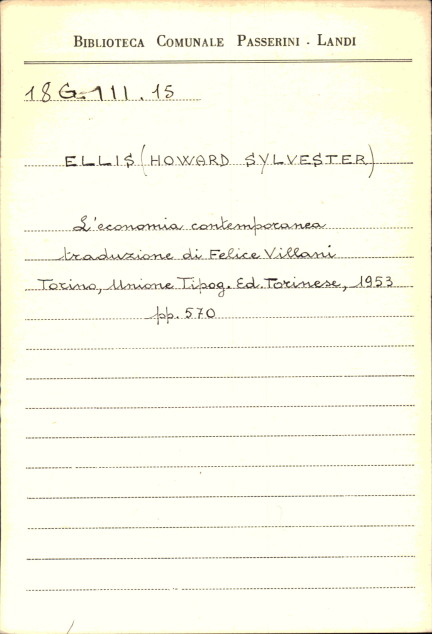 BIBLIOTECA COMUNALE PASSERINI - LANDI
18 G-III. 15
ELLIS (HOWARD SYLVESTER)
L'economia contemporanea
traduzione di Felice Villani
Torino, Unione Tipog. Ed. Torinese, 1953
pp. 570